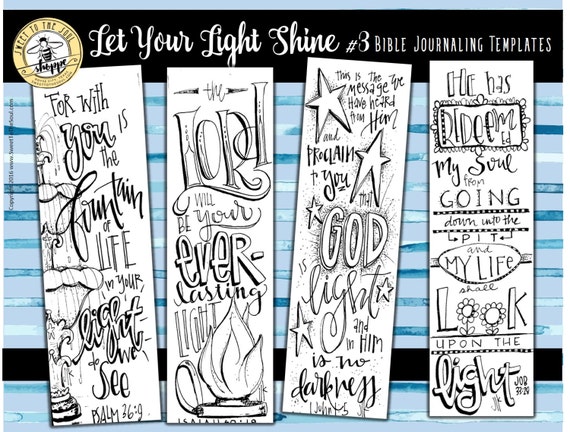 SWEET TO THE SOUL
shoppe
Let Your Light Shine #3 BIBLE JOURNALING TEMPLATES
Copyright 2016 www.SweetToTheSoul.com
FOR WITH
you IS
the
fountain
OF LIFE
IN YOUR
light
do we
SEE
PSALM 36:9
the
LORD
WILL
BE YOUR
EVER-
lasting
LIGHT
ISAIAH 60:19
THIS IS THE
MESSAGE WE
HAVE HEARD
FROM
HIM
AND
PROCLAIM
TO
YOU
that
GOD
IS
light
and
IN HIM
is no
darkness
1 John 1:5
HE HAS
REDEEMED
MY SOUL
FROM
GOING
down into the
PIT
and
MY LIFE
shall
LOOK
UPON THE
light
JOB
33:28